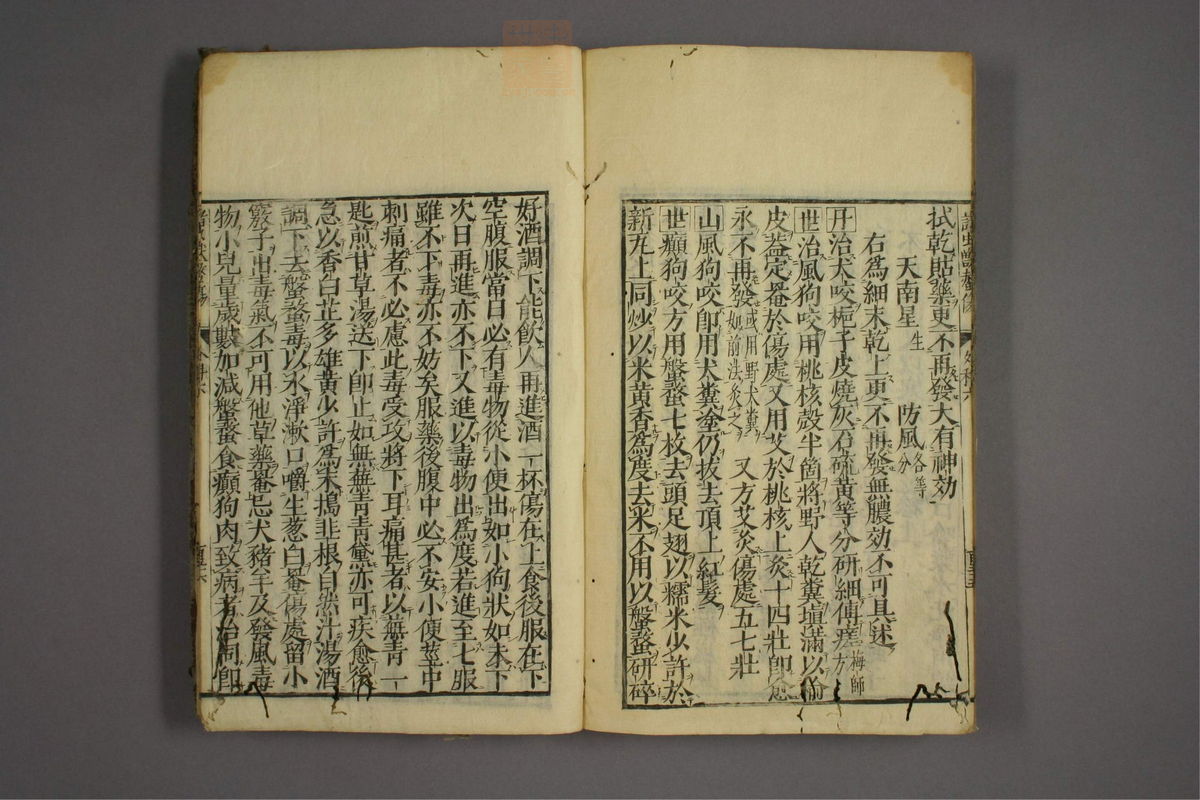 拭乾貼藥更不再發大有神効
天南星生　防風各等分
右爲細末乾上更不再發無膿効不可具述
丹治犬咬梔子皮燒灰石硫黄等分研細傅瘥梅師方
世治風狗咬用桃核殼半箇將野人乾糞塡滿以楡
皮葢定罨於傷處又用艾於桃核上灸十四壯即愈
永不再發或用野犬糞如前法灸之　又方艾灸傷處五七壯
山風狗咬卽用犬糞塗仍拔去頂上紅髮
世癲狗咬方用盤蝥七枚去頭足翅以糯米少許於
新瓦上同炒以米黄香爲度去米不用以盤蝥研碎
好酒調下能飲人再進酒一杯傷在上食後服在下
空腹服當日必有毒物從小便出如小狗狀如未下
次日再進亦不下又進以毒物出爲度若進至七服
雖不下毒亦不妨矣服藥後腹中必不安小便莖中
刺痛者不必慮此毒受攻將下耳痛甚者以蕪青一
匙煎甘草湯送下卽止如無蕪青青黛亦可疾愈後
急以香白芷多雄黄少許爲末搗韭根自然汁湯酒
調下去盤蝥毒以水淨漱口嚼生葱白罨傷處留小
竅子出毒氣不可用他草藥罨忌犬豬羊及發風毒
物小兒量歲數加減盤蝥食癲狗肉致病者治同卽